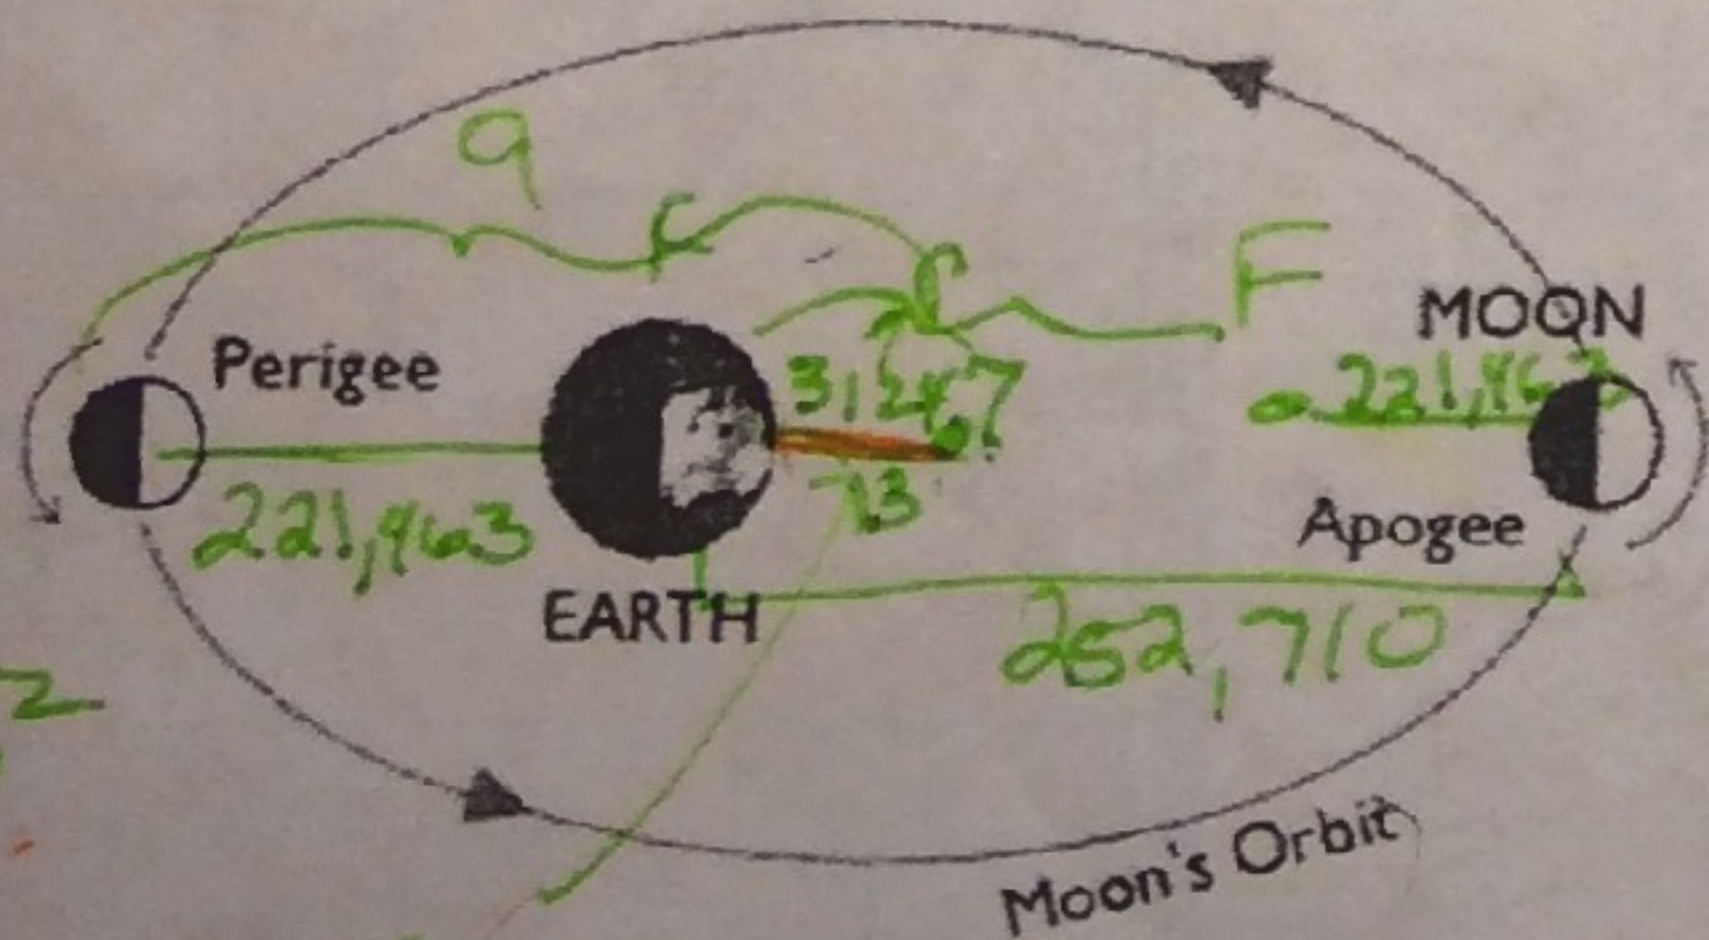 a
F
MOON
Perigee
31247
221,463
221,463
Apogee
EARTH
252,710
2
Moon's Orbit